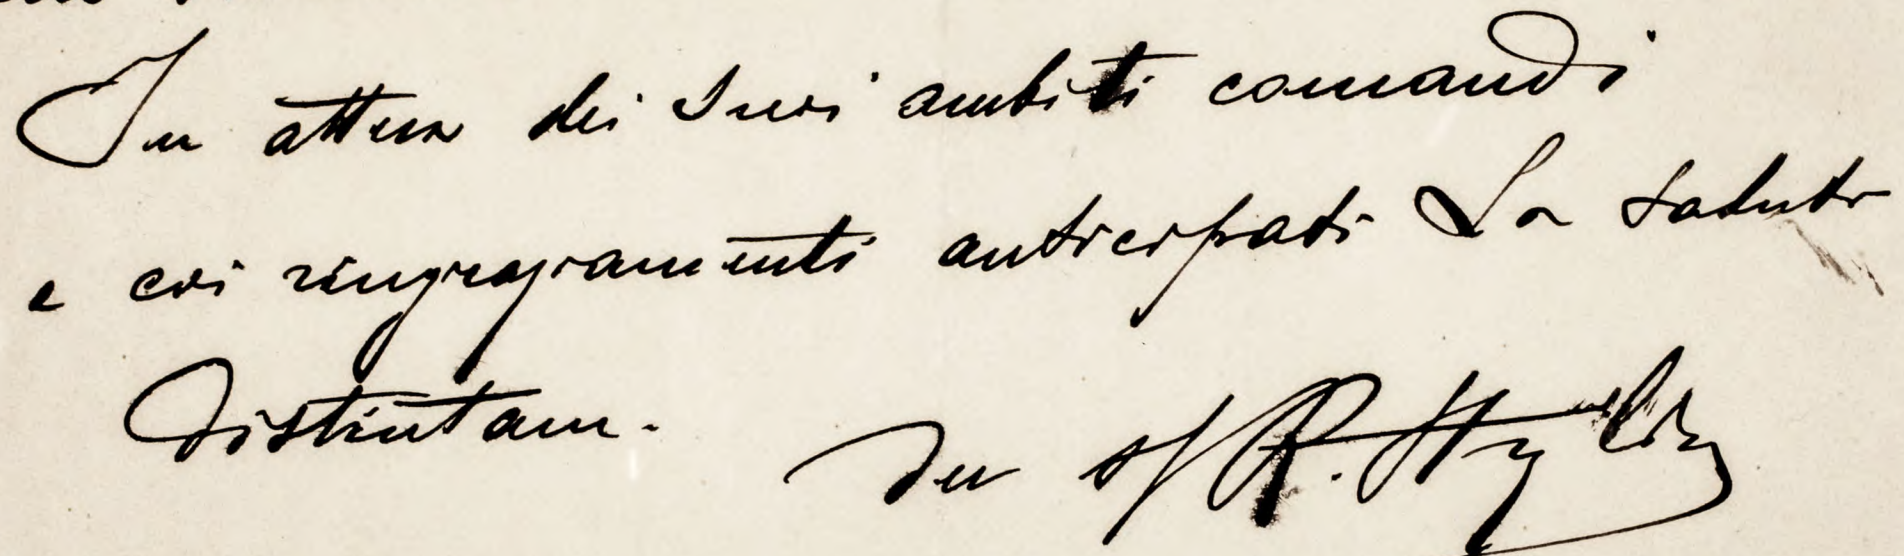 In attesa dei Suoi ambiti comandi
e coi ringraziamenti anticipati La saluto
distintam.